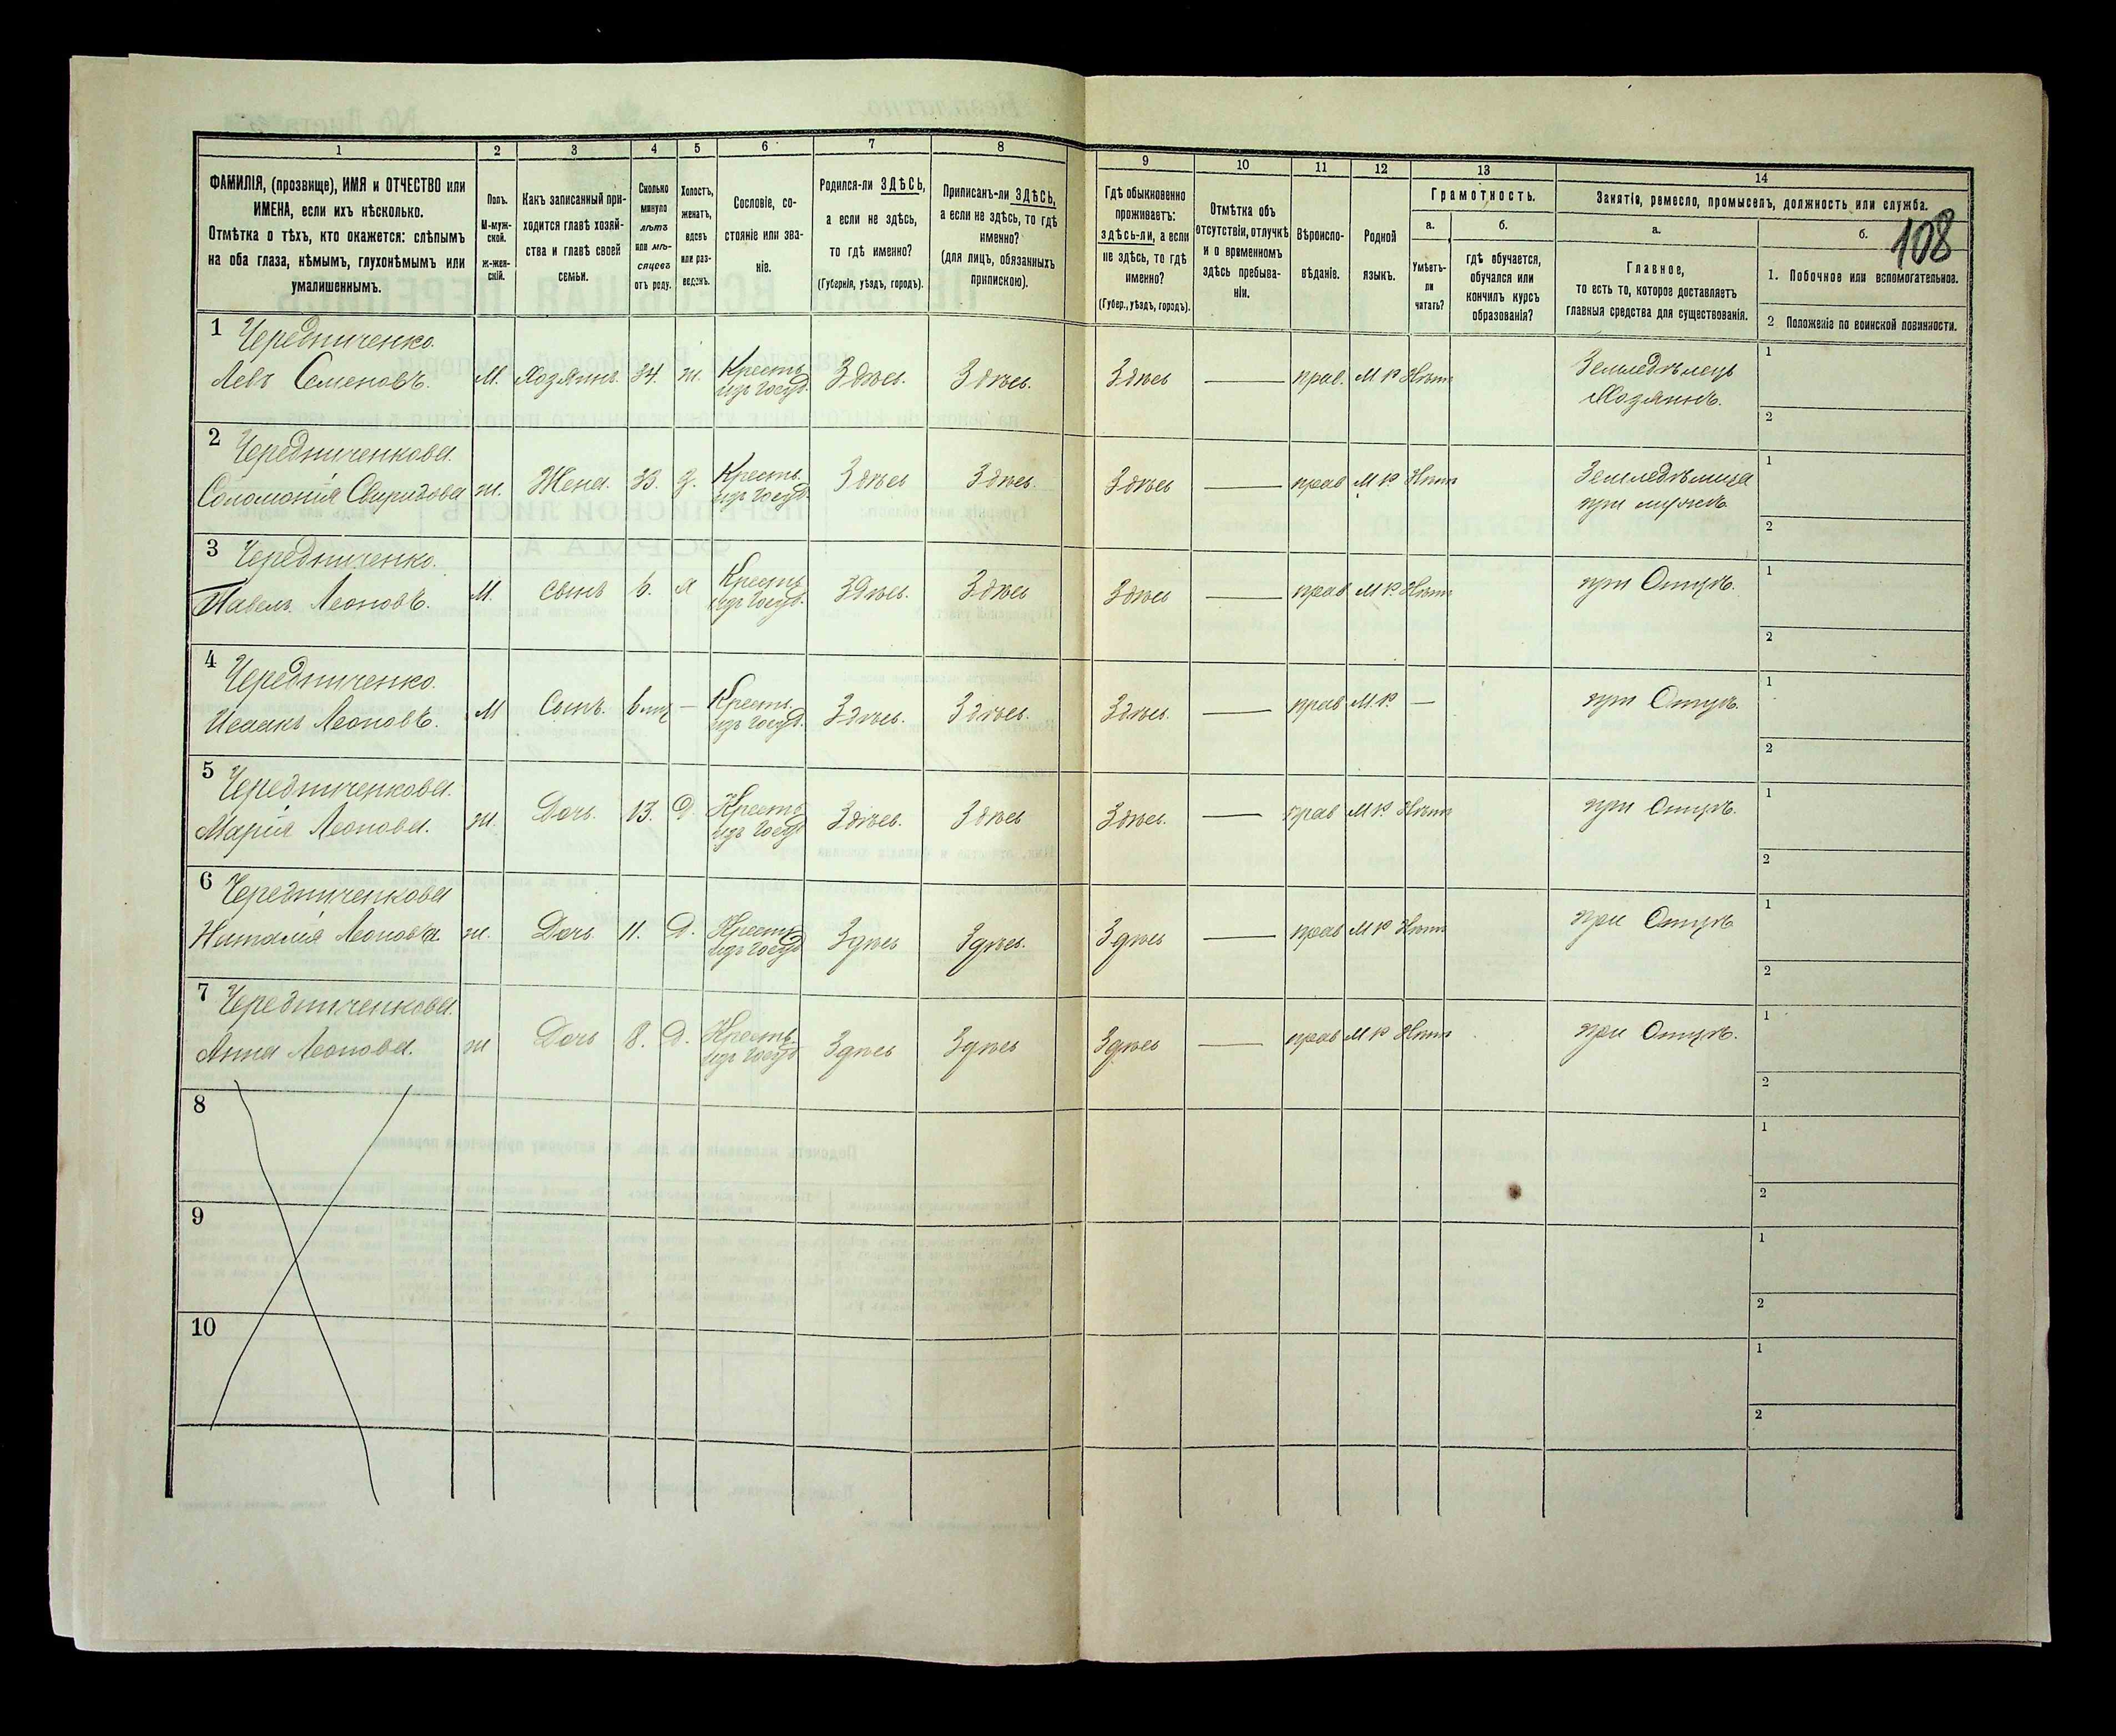 108
1 2 3 4 5 6 7 8 9 10 11 12 13 14
ФАМИЛІЯ, (прозвище), ИМЯ и ОТЧЕСТВО или
ИМЕНА, если ихъ нѣсколько.
Отмѣтка о тѣхъ, кто окажется: слѣпымъ
на оба глаза, нѣмымъ, глухонѣмымъ или
умалишеннымъ.
Полъ.
М-муж-
ской.
ж-жен-
скій.
Какъ записанный при-
ходится главѣ хозяй-
ства и главѣ своей
семьи.
Сколько
минуло
лѣтъ
или мѣ-
сяцевъ
отъ роду.
Холостъ,
женатъ,
вдовъ
или раз-
веденъ.
Сословіе, со-
стояніе или зва-
ніе.
Родился-ли ЗДѢСЬ,
а если не здѣсь,
то гдѣ именно?
(Губернія, уѣздъ, городъ).
Приписанъ-ли ЗДѢСЬ,
а если не здѣсь, то гдѣ
именно?
(для лицъ, обязанныхъ
припискою).
Гдѣ обыкновенно
проживаетъ:
здѣсь-ли, а если
не здѣсь, то гдѣ
именно?
(Губер., уѣздъ, городъ).
Отмѣтка объ
отсутствіи, отлучкѣ
и о временномъ
здѣсь пребыва-
ніи.
Вѣроиспо-
вѣданіе.
Родной
языкъ.
Грамотность.
а.
Умѣетъ-
ли
читать?
б.
гдѣ обучается,
обучался или
кончилъ курсъ
образованія?
Занятіе, ремесло, промыселъ, должность или служба.
а.
Главное,
то есть то, которое доставляетъ
главныя средства для существованія.
б.
1. Побочное или вспомогательное.
2 Положеніе по воинской повинности.
1 Чередниченко.
Левъ Семеновъ. М. Хозяинъ. 34. ж. Крестъ. изъ госуд. Здѣсь. Здѣсь. Здѣсь — прав. М Р Нѣтъ Земледѣлецъ Хозяинъ. 1 2
2 Чередниченкова.
Соломонія Свиридова ж. Жена. 33. з. Крестъ. изъ госуд. Здѣсь Здѣсь. Здѣсь — прав М Р Нѣтъ Земледѣлица при мужѣ 1 2
3 Чередниченко.
Павелъ Леоновъ. М. сынъ 6. х Крестъ изъ госуд. Здѣсь. Здѣсь Здѣсь — прав М Р. Нѣтъ при Отцѣ. 1 2
4 Чередниченко.
Исаакъ Леоновъ. М Сынъ. 6 мц — Крестъ. изъ госуд. Здѣсь. Здѣсь. Здѣсь. — прав М. Р. — при Отцѣ. 1 2
5 Чередниченкова.
Марія Леонова. ж. Дочь. 13. Д Крестъ изъ госуд Здѣсь. Здѣсь Здѣсь. — прав М Р. Нѣтъ при Отцѣ. 1 2
6 Чередниченкова
Наталія Леонова. ж. Дочь 11. Д. Крестъ. изъ госуд Здѣсь Здѣсь. Здѣсь — прав М Р Нѣтъ при Отцѣ 1 2
7 Чередниченкова.
Анна Леонова. ж Дочь 8. Д. Крестъ. изъ госуд Здѣсь Здѣсь Здѣсь — прав М Р Нѣтъ при Отцѣ. 1 2
8 1 2
9 1 2
10 1 2